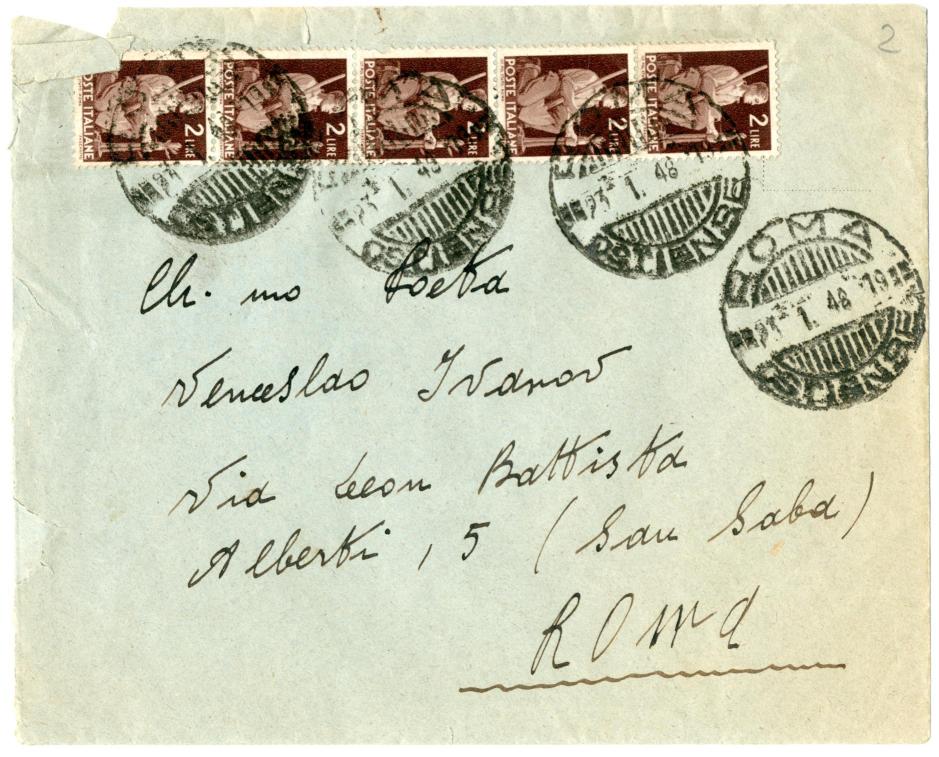 2
POSTE ITALIANE 2 LIRE
POSTE ITALIANE 2 LIRE
POSTE ITALIANE 2 LIRE
POSTE ITALIANE 2 LIRE
POSTE ITALIANE 2 LIRE
23 1. 48 OSTIENSE
ROMA 23 1. 48 19 OSTIENSE
ROMA 23 1. 48 19 OSTIENSE
Ch. mo Poeta
Venceslao Ivanov
Via Leon Battista
Alberti, 5 (San Saba)
Roma